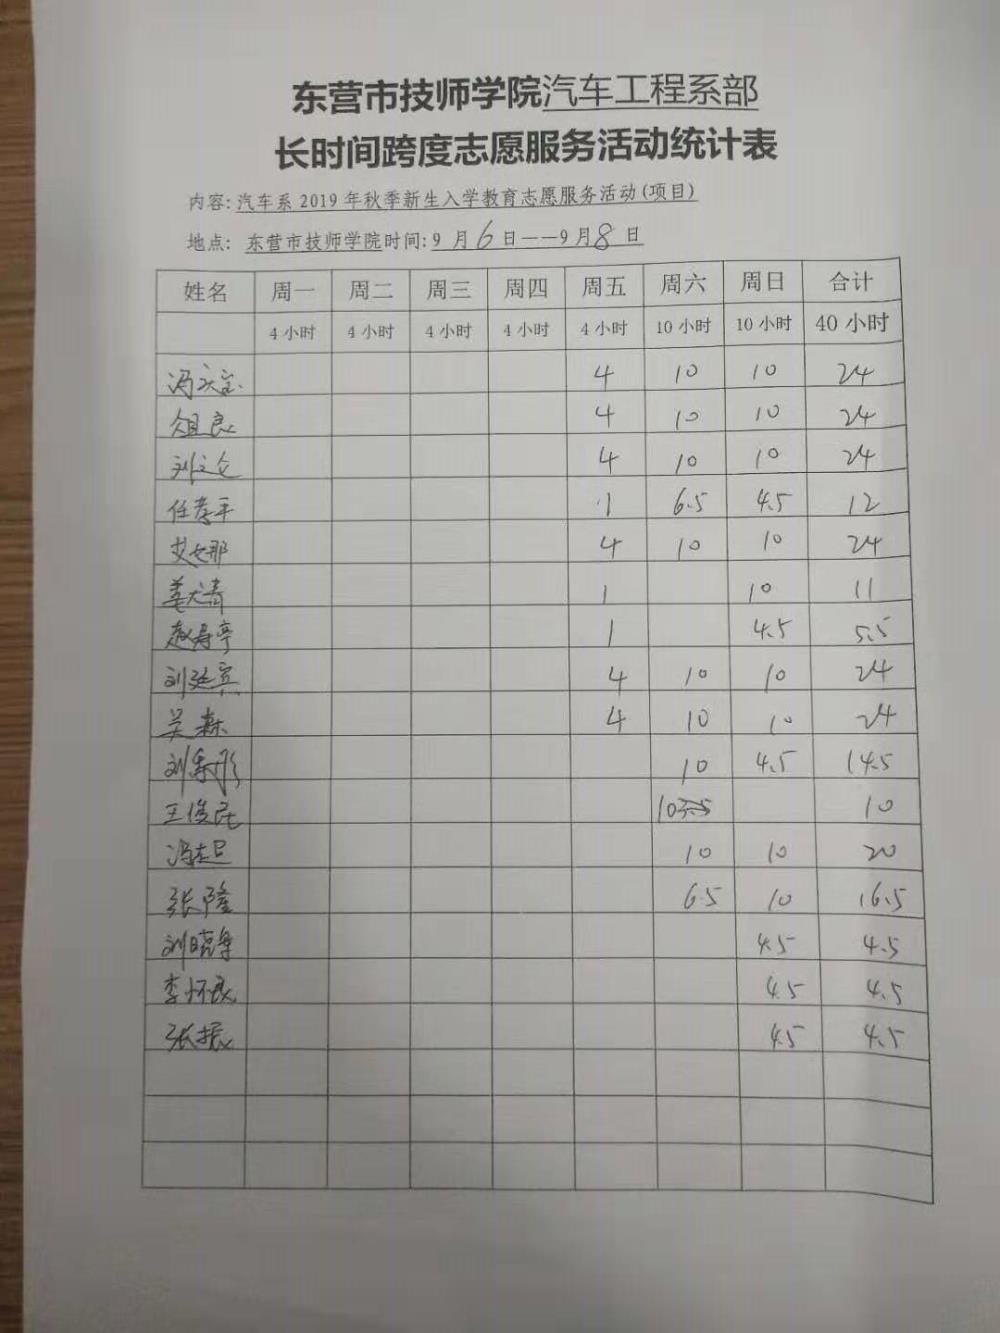 东营市技师学院汽车工程系部
长时间跨度志愿服务活动统计表
内容:汽车系2019年秋季新生入学教育志愿服务活动(项目)
地点: 东营市技师学院时间:9 月6日——9月8 日
姓名 周一 周二 周三 周四 周五 周六 周日 合计
4小时 4小时 4小时 4小时 4小时 10小时 10小时 40小时
冯 4 10 10 24
俎良 4 10 10 24
刘文仑 4 10 10 24
任孝平 1 6.5 4.5 12
艾女那 4 10 10 24
姜大清 1 10 11
赵寿亭 1 4.5 5.5
刘延宾 4 10 10 24
吴森 4 10 10 24
刘秀彤 10 4.5 14.5
王俊民 10 10
冯志旦 10 10 20
张隆 6.5 10 16.5
刘晓军 4.5 4.5
李怀良 4.5 4.5
张振 4.5 4.5